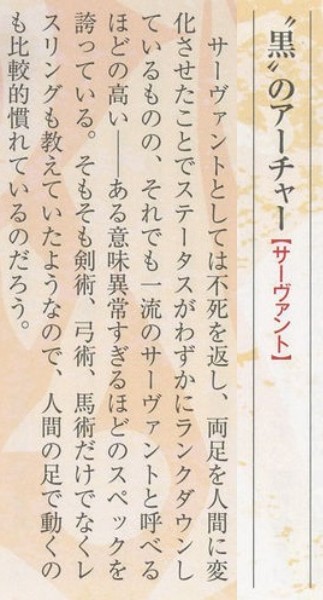 〝黒〟のアーチャー【サーヴァント】
サーヴァントとしては不死を返し、両足を人間に変
化させたことでステータスがわずかにランクダウンし
ているものの、それでも一流のサーヴァントと呼べる
ほどの高い――ある意味異常すぎるほどのスペックを
誇っている。そもそも剣術、弓術、馬術だけでなくレ
スリングも教えていたようなので、人間の足で動くの
も比較的慣れているのだろう。